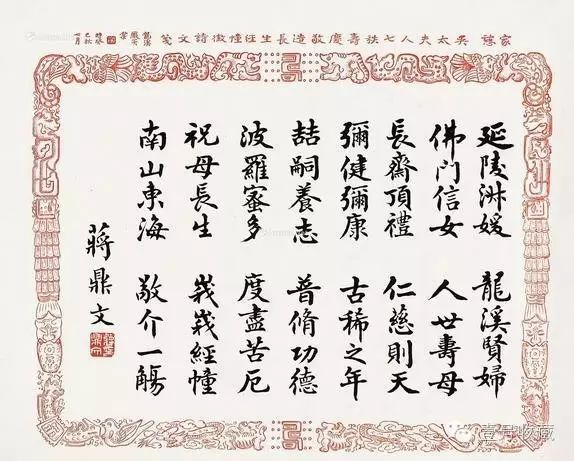 家慈吳太夫人七秩壽慶敬造長生經幢徵詩文箋
延陵淑媛 龍溪賢婦
佛門信女 人世壽母
長齋頂禮 仁慈則天
彌健彌康 古稀之年
喆嗣養志 普脩功德
波羅蜜多 度盡苦厄
祝母長生 峩峩經幢
南山東海 敬介一觴
蔣鼎文
壹号收藏